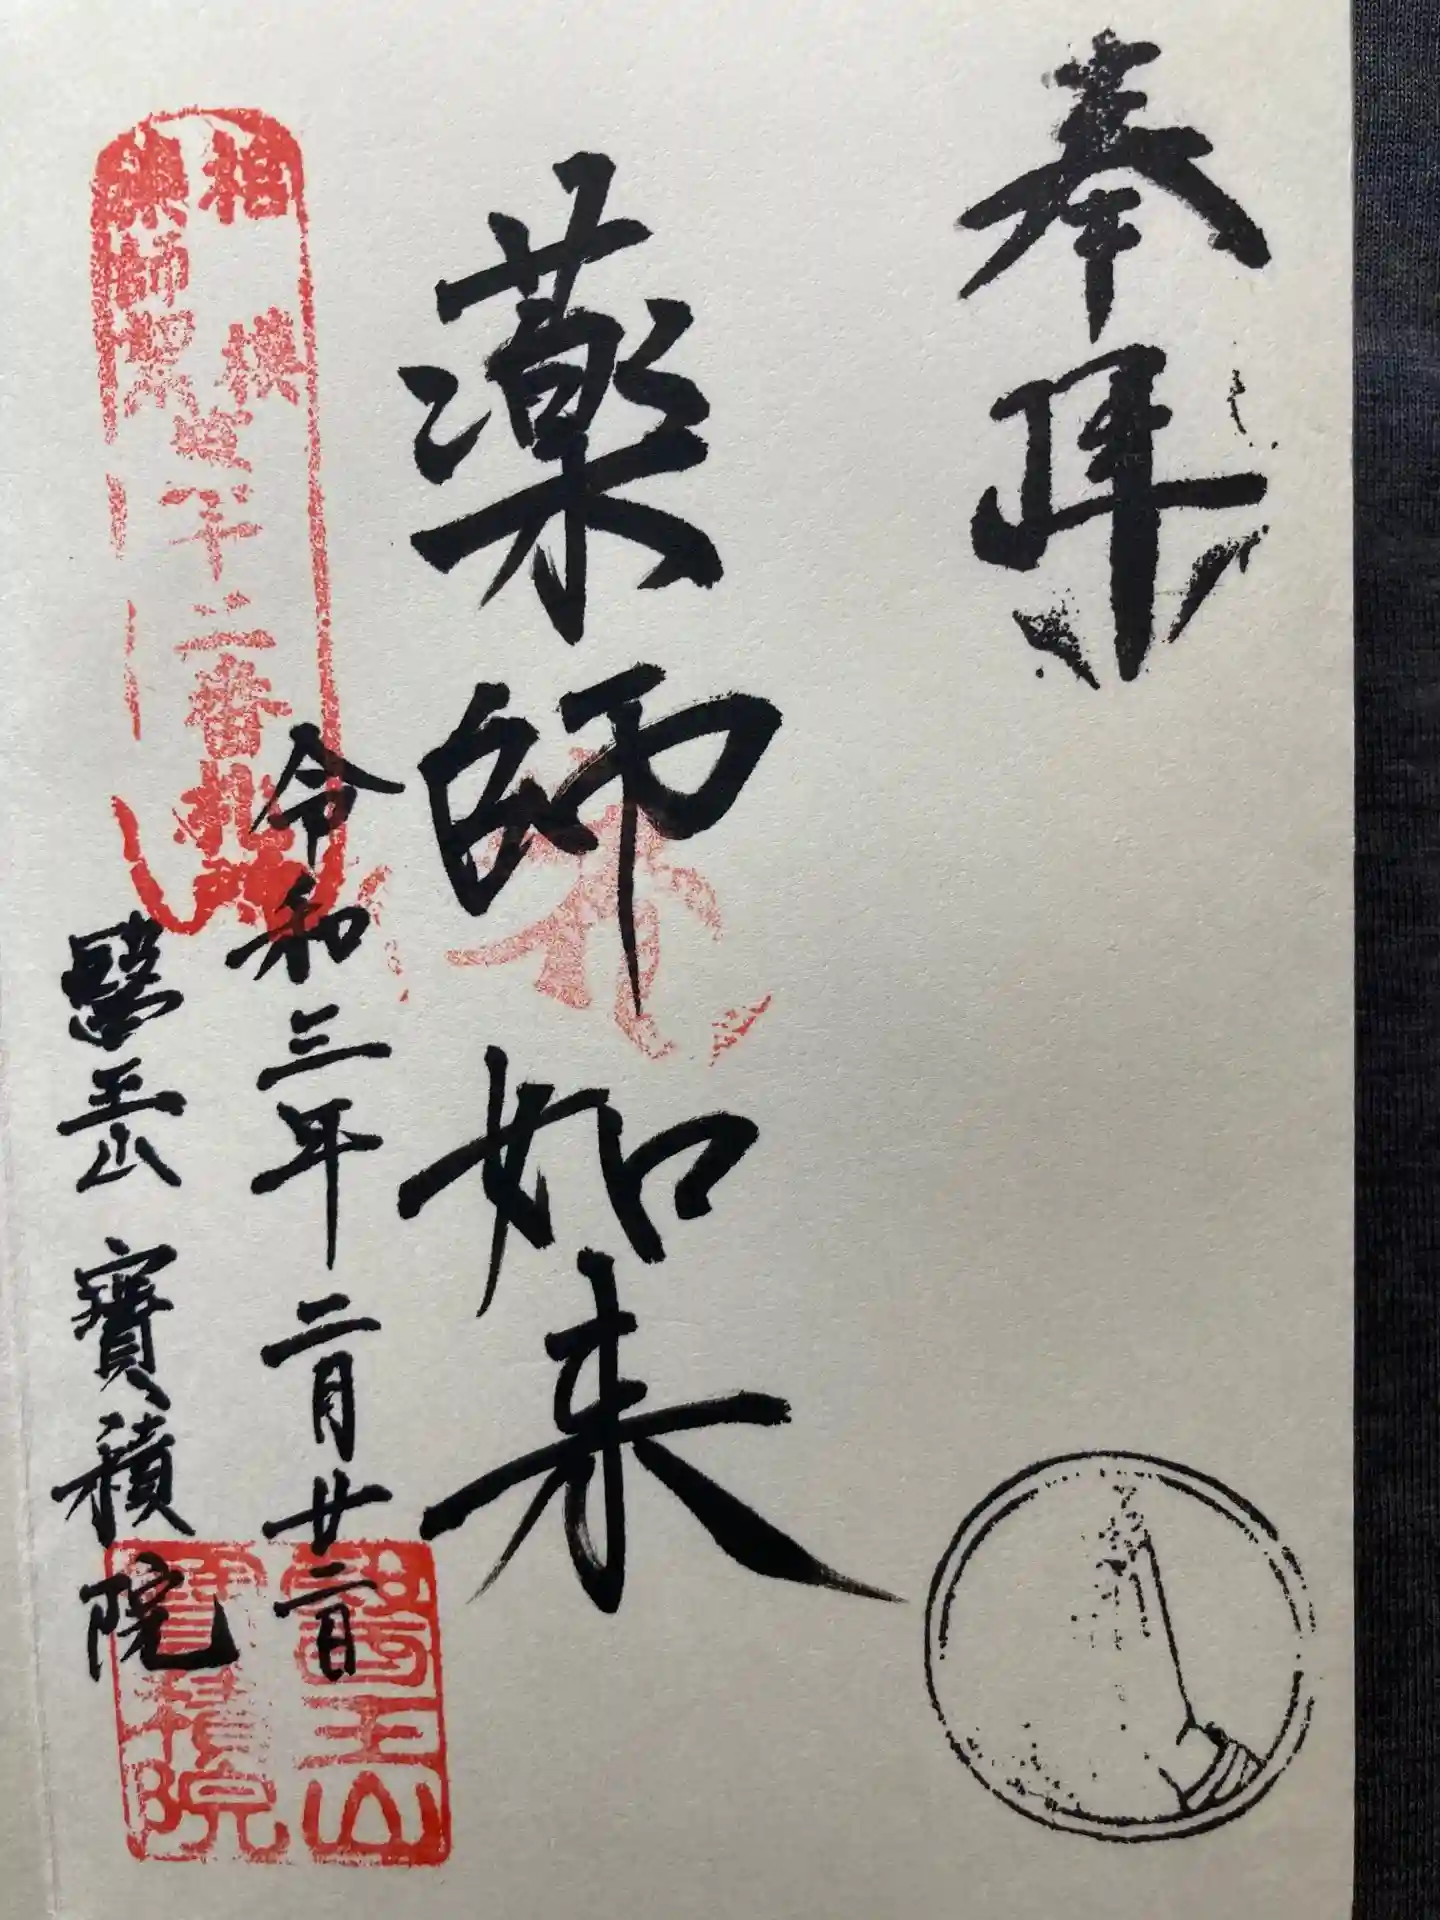 奉拝
薬師如来
令和三年二月廿二日
醫王山 寶積院
相模
薬師
十二番札
醫王山
寶積院